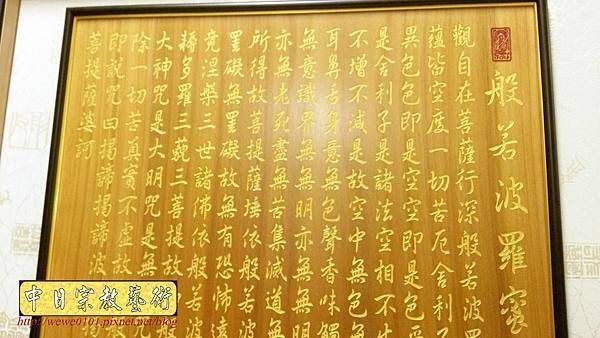 般若波羅蜜
觀自在菩薩行深般若波羅
蘊皆空度一切苦厄舍利子
異色色即是空空即是色受
是舍利子是諸法空相不生
不增不減是故空中無色無
耳鼻舌身意無色聲香味觸
無意識界無無明亦無無
亦無老死盡無苦集滅道無
所得故菩提薩埵依般若波
罣礙無罣礙故無有恐怖遠
竟涅槃三世諸佛依般若波
耨多羅三藐三菩提故
大神咒是大明咒是無
除一切苦真實不虛故
即說咒曰揭諦揭諦波
菩提薩婆訶
中日宗教藝術
http://wewe0101.pixnet.net/blog